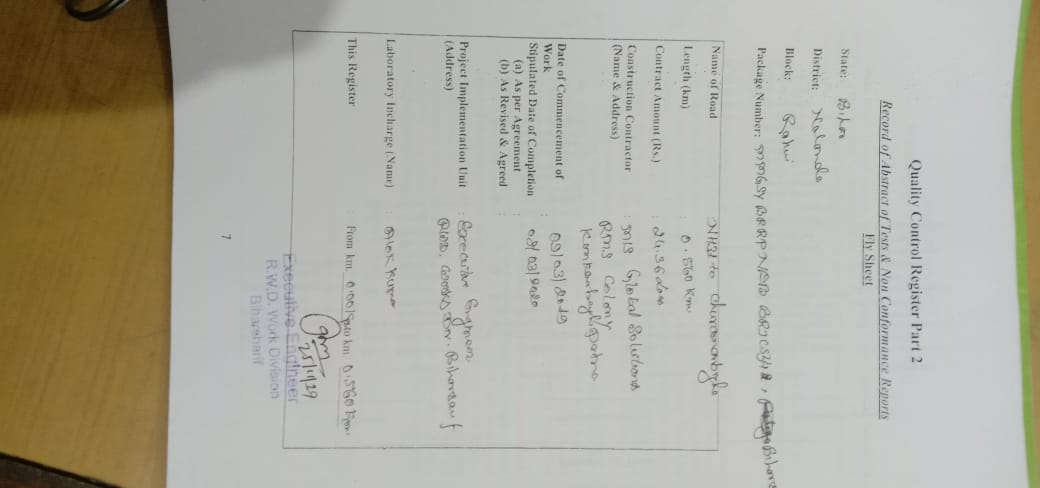 Quality Control Register Part 2
Record of Abstract of Tests & Non Conformance Reports
Fly Sheet
State: Bihar
District: Nalanda
Block: Rahui
Package Number: MMGSY BRRP NDB
Name of Road : NH31 to
Length (km) : 0.560 Km
Contract Amount (Rs.) : 24.36
Construction Contractor : M/S Global Solutions
(Name & Address) RMS Colony
Kankarbagh, Patna
Date of Commencement of : 09/03/2019
Work
Stipulated Date of Completion :
(a) As per Agreement : 08/03/2020
(b) As Revised & Agreed :
Project Implementation Unit : Executive Engineer
(Address) RWD, Works Div. Biharsarif
Laboratory Incharge (Name) : Alok Kumar
This Register : From km. 0.00 to km. 0.560 Km.
Executive Engineer
R.W.D. Work Division
Biharsharif
7